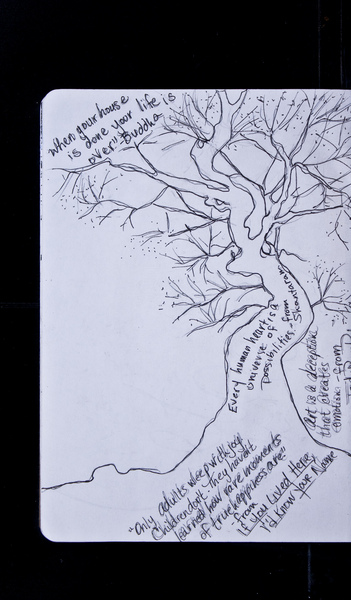 when your house
is done your life is
over" - Buddha
Every human heart
universe of is a
possibilities - from
Shantaram
art is a deception
that creates
emotion - from
"Only adults weep with joy
Children don't. They haven't
learned how rare moments
of true happiness are"
- from
If You Lived Here,
I'd Know Your Name